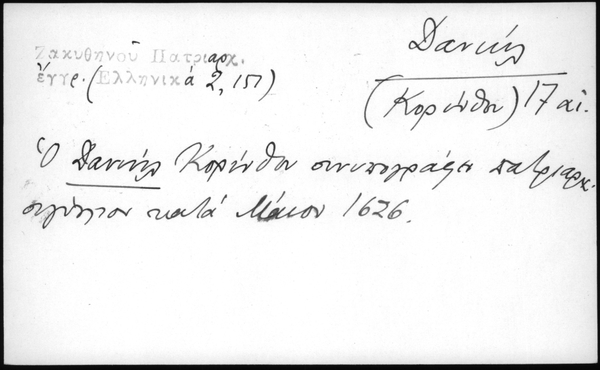 Ζακυθηνοῦ Πατριαρχ.
ἔγγρ. (Ἑλληνικά 2, 151)
Δανιήλ
(Κορίνθου) 17 αἰ.
Ὁ Δανιήλ Κορίνθου συνυπογράφει πατριαρχ.
σιγίλλιον κατά Μάιον 1626.